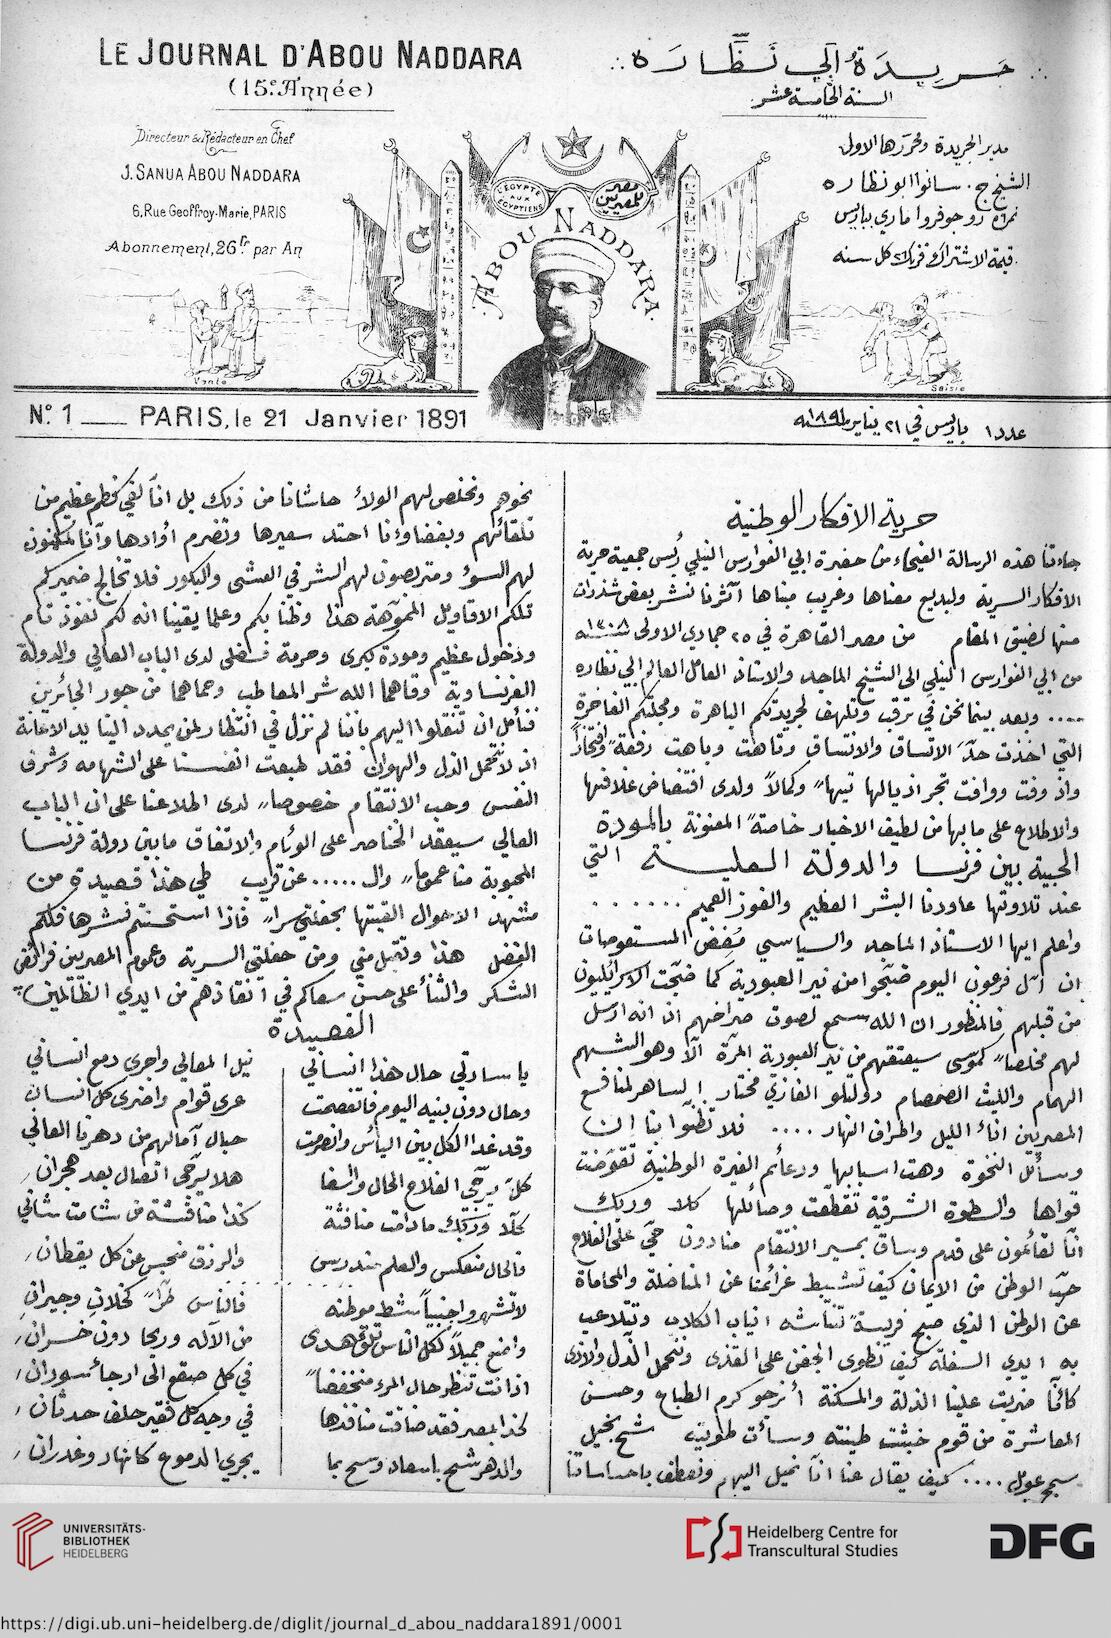 LE JOURNAL D'ABOU NADDARA
(15e Année)
جريدة ابي نظاره
السنة الخامسة عشر
Directeur & Rédacteur en Chef
J. SANUA ABOU NADDARA
6, Rue Geoffroy-Marie, PARIS
Abonnement, 26fr par An
مدير الجريدة ومحررها الاول
الشيخ ج. سانوا ابو نظاره
نمرة ٦ رو جوفروا ماري بباريس
قيمة الاشتراك ٢٦ فرنك كل سنه
L'EGYPTE AUX EGYPTIENS
مصر للمصريين
ABOU NADDARA
Vente
Saisie
No. 1 — PARIS, le 21 Janvier 1891
عدد ١ باريس في ٢١ يناير سنة ١٨٩١
حرية الافكار الوطنية
جاءتنا هذه الرسالة الفيحاء من حضرة ابي الفوارس النيلي رئيس جمعية حرية
الافكار السرية ولبديع معناها وغريب مبناها آثرنا نشر بعض شذرات
منها لضيق المقام من مصر القاهرة في ٢٥ جمادي الاولى سنة ١٣٠٨
من ابي الفوارس النيلي الى الشيخ الماجد والاستاذ العامل العالم ابي نظاره
.... وبعد بينما نحن في ترقب وتلهف لجريدتكم الباهرة ومجلتكم الفاخرة
التي اخذت حدّ الاتساق والانتساق وتاهت وباهت رفعة وافتخاراً
واذ وفت ووافت تجر اذيالها تيهاً وكمالاً ولدى افتضاض غلافها
والاطلاع على ما بها من لطيف الاخبار خاصة المعنونة بالمودة
الحبية بين فرنسا والدولة العلية التي
عند تلاوتها عاودنا البشر العظيم والفوز العميم .......
واعلم ايها الاستاذ الماجد والسياسي
ان آل فرعون اليوم ضجّوا من نير العبودية كما ضجّت الاسرائيليون
من قبلهم فالمنظور ان الله سمع لصوت صراخهم اذ انه ارسل
لهم مخلصاً كموسى سيعتقهم من نير العبودية المرّة ألا وهو الشهم
الهمام والليث الصمصام دولتلو الغازي مختار الساهر لمنافع
المصريين اناء الليل واطراف النهار .... فلا تظنوا بنا ان
وسائل النخوة وهت اسبابها ودعائم الغيرة الوطنية تقوضت
قواها والسطوة الشرقية تقطعت وصائلها كلا وربك
انّا لقائمون على قدم وساق بحسير الانتقام منادون حيّ على الفلاح
حبّ الوطن من الايمان كيف تثبيط عزائمنا عن المناضلة والمحاماة
عن الوطن الذي صبح فريسة تناشه انياب الكلاب وتتلاعب
به ايدي السفلة كيف نطوى الجفن على القذى ونتحمل الذل والاذى
كانما ضربت علينا الذلة والمسكنة أنرجو كرم الطباع وحسن
المعاشرة من قوم خبثت طينته وساءت طويته شح بخيل
.... كيف يقال عنا انّا نميل اليهم ونعطف باحساساتنا
نحوهم ونخلص لهم الولاء حاشانا من ذلك بل انّا لفي كظم عظيم من
تلقائهم وبغضاؤنا احتد سعيرها وتضرم أوارها وانا لمكنون
لهم السوء ومتربصون لهم الشر في العشى والبكور فلا تخالج ضميركم
تلكم الاقاويل المموّهة هذا وظننا بكم وعلما يقينا انه لكم نفوذ تام
ودخول عظيم ومودة كبرى وحرمة فضلى لدى الباب العالي والدولة
الفرنساوية وقاهما الله شر المعاطب وحماهما من جور الجائرين
فنأمل ان تنقلوا اليهم باننا لم نزل في انتظار لمن يمدد الينا يد الاعانة
اذ لا نتحمل الذل والهوان فقد طبعت انفسنا على الشهامه وشرف
النفس وحب الانتقام خصوصاً لدى اطلاعنا على ان الباب
العالي سيعقد الخناصر على الوئام والاتفاق ما بين دولة فرنسا
المحبوبة منا عموماً وال...... عن قريب طي هذا قصيدة من
مشهد الاحوال القيتها بجمعيتي سراً فاذا استحسنتم نشرها فلكم
الفضل هذا وتقبل مني ومن جمعيتي السرية وعموم المصريين فرائض
الشكر والثناء على حسن سعاكم في انقاذهم من ايدي الظالمين
القصيدة
يا سادتي حال هذا انساني نيل المعالي واجرى دمع انساني
وحال دون بنيه اليوم فانفصمت عرى قوام واضرى كل انسان
وقد غدا الكل بين اليأس وانصرمت حبال آمالهم من دهرنا العاني
كلّ يرجّي الفلاح الحال واسفا هلا يرجّى اتصال بعد هجران
كلا وربك ما دامت منافثة كذا منافسة من شامت شاني
فالحال منعكس والعلم مندرس والرزق منحبس عن كل يقظان
لا تشهر واجنبياً شط موطنه فالناس طرّاً كخلان وجيران
واصنع جميلاً لكل الناس تلق هدى من الاله وربحا دون خسران
اذا انت تنظر حال المرء منخفضاً في كل صقع اتى ارجاء سودان
كذا بمصر فقد ضاقت منافذها في وجه كل فقير حلف حدثان
والدهر شح باسعاد وسح بما يجري الدموع كانهار وغدران
UNIVERSITÄTS-
BIBLIOTHEK
HEIDELBERG
Heidelberg Centre for
Transcultural Studies
DFG
https://digi.ub.uni-heidelberg.de/diglit/journal_d_abou_naddara1891/0001